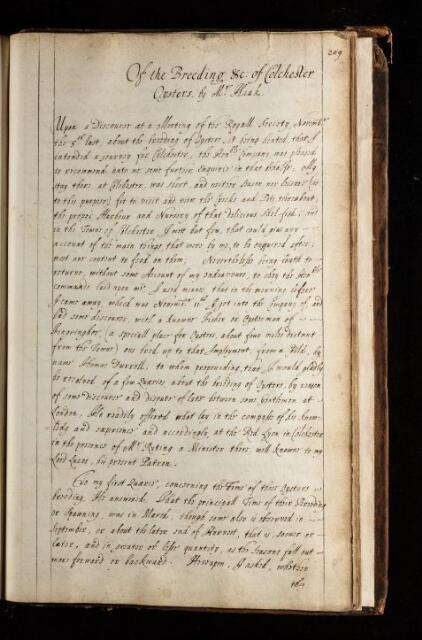 209
Of the Breeding &c. of Colchester
Oysters. by Mr. Heak.
Upon a Discourse at a Meeting of the Royall Society, Novemb.
the 5th last, about the breeding of Oysters, it being hinted, that I
intended a journey for Colchester, the Honble Company was pleased
to recommend unto me some further Enquiries in that behalfe; My
stay there, at Colchester, was short, and neither Season nor Leisure (as
to this purpose) fit to visit and view the Creeks and Pits thereabout,
the proper Harbour and Nursery of that delicious Shel-fish, and
in the Towne of Colchester I mett but few, that could give any
account of the main things that were by me, to be enquired after,
most are content to feed on them; Neverthelesse being loath to
returne, without some Account of my endeavours, to obey the Honble
commands laid upon me, I used means, that in the morning before
I came away, which was Novemb. 11th I got into the Company of, and
had some discourse, with a knowne Fisher or Oysterman of
(a speciall place for Oysters, about four miles distant
from the Towne) one bred up to that Employment, from a Child, by
name Thomas Durrell, to whom propounding, that I would gladly
be resolved of a few Quaries, about the breeding of Oysters, by reason
of some discourse and dispute of late between some Gentlemen at
London, He readily offered what lay in the compasse of his know-
ledg and experience and accordingly, at the Red Lyon in Colchester
in the presence of Mr. a Minister there well knowne to my
Lord Lucas, his present Patron.
To my first Quarie, concerning the Time of their Oysters
breeding. He answered, That the principall Time of their Breeding
or Spawning was in March, though some also is observed in
September, or about the later end of Harvest, that is, sooner or
later, and in greater or lesse quantity, as the Seasons fall out
more forward or backward. Hereupon, I asked, whether
they